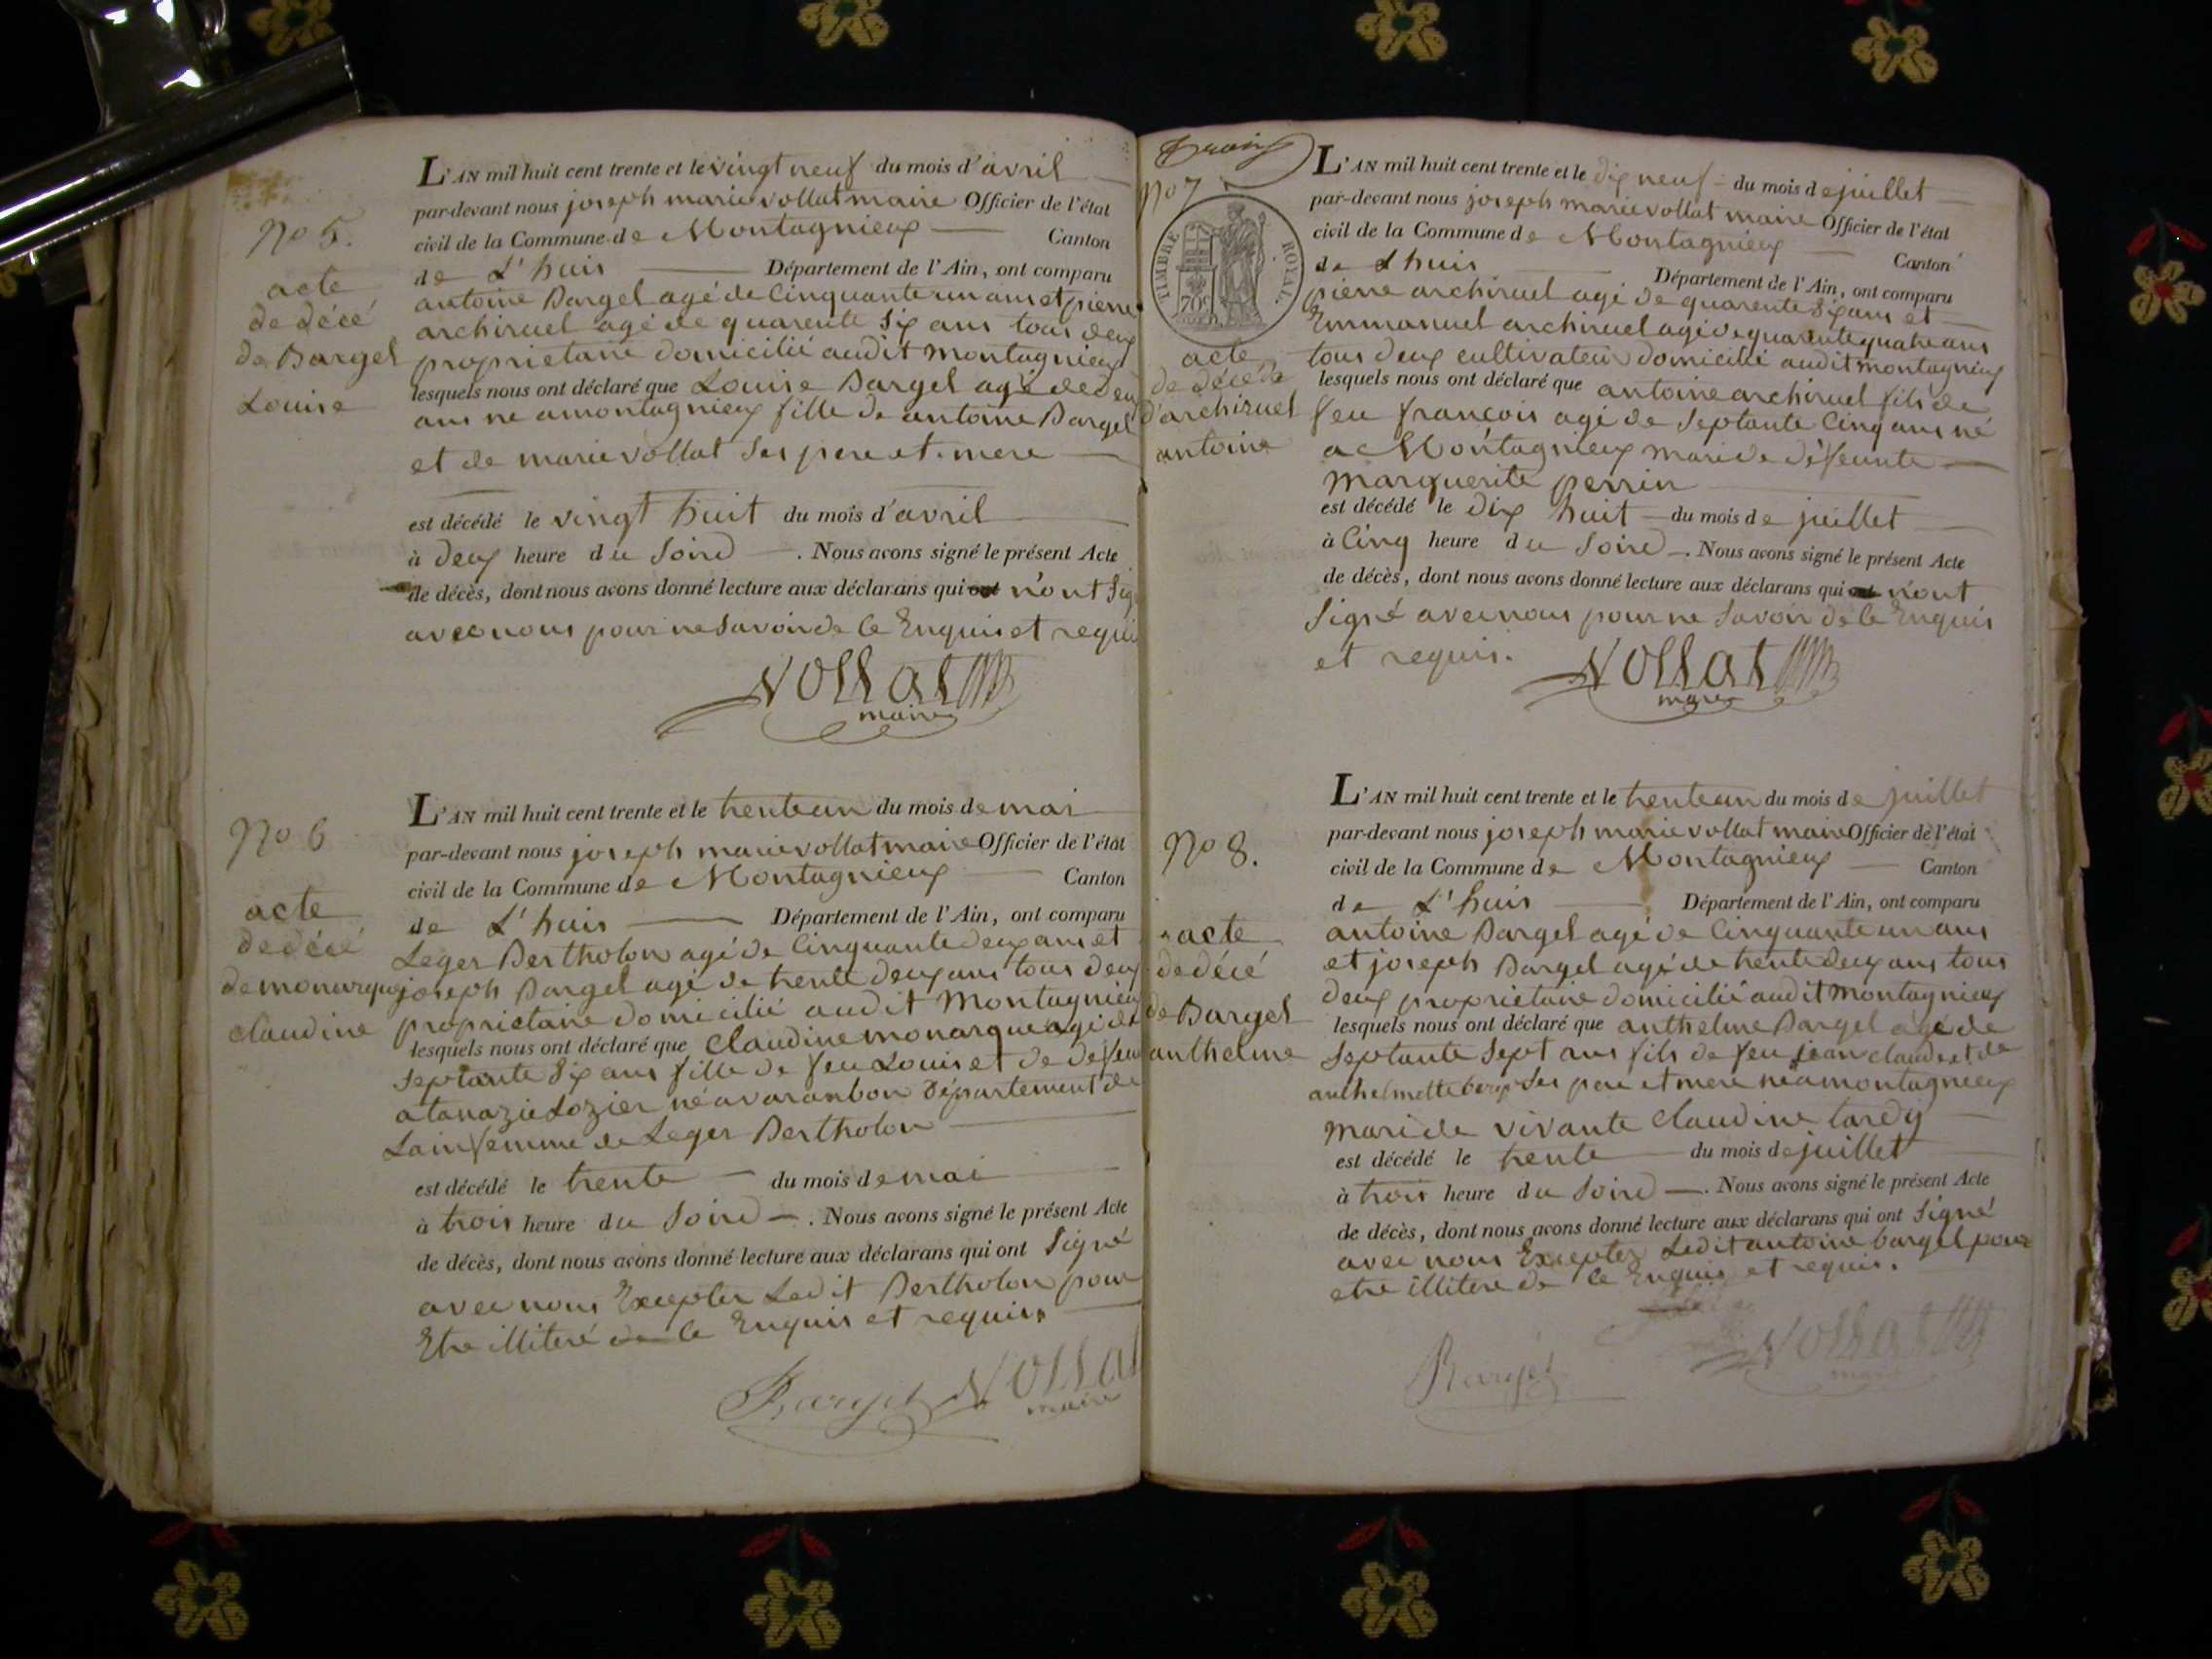 No 5.
acte
de décé
de Bargel
Louise
L'AN mil huit cent trente et le vingt neuf du mois d'avril
par-devant nous joseph marie vollat maire Officier de l'état
civil de la Commune de Montagnieux Canton
de L'huis Département de l'Ain, ont comparu
antoine Bargel agé de Cinquante un ans et pierre
archiruel agé de quarente Six ans tous deux
proprietaire domicilié audit montagnieux
lesquels nous ont déclaré que Louise Bargel agé de deux
ans ne a montagnieux fille de antoine Bargel
et de marie vollat Ses pere et mere
est décédé le vingt huit du mois d'avril
à deux heure du Soird. Nous avons signé le présent Acte
de décès, dont nous avons donné lecture aux déclarans qui ont n'ont Sig
avec nous pour ne Savoir de ce Enquis et requis
Vollat
maire
No 6
acte
de décé
de monarque
claudine
L'AN mil huit cent trente et le trente un du mois de mai
par-devant nous joseph marie vollat maire Officier de l'état
civil de la Commune de Montagnieux Canton
de L'huis Département de l'Ain, ont comparu
Leger Bertholon agé de Cinquante deux ans et
joseph Bargel agé de trente deux ans tous deux
proprietaire domicilié audit Montagnieux
lesquels nous ont déclaré que Claudine monarque agé de
Septante Six ans fille de feu Louis et de defeu
atanazie Lozier né a varanbon département de
Lain femme de Leger Bertholon
est décédé le trente du mois de mai
à trois heure du Soird. Nous avons signé le présent Acte
de décès, dont nous avons donné lecture aux déclarans qui ont Signé
avec nous Excepter Ledit Bertholon pour
Etre illiteré de ce Enquis et requis
Bargel Vollat
maire
No 7
TIMBRE ROYAL.
70c
acte
de décé de
d'archiruel
antoine
L'AN mil huit cent trente et le dix neuf du mois de juillet
par-devant nous joseph marie vollat maire Officier de l'état
civil de la Commune de Montagnieux Canton
de Lhuis Département de l'Ain, ont comparu
pierre archiruel agé de quarente Six ans et
Emmanuel archiruel agé de quarente quatre ans
tous deux cultivateur domicilié audit montagnieux
lesquels nous ont déclaré que antoine archiruel fils de
feu françois agé de Septante Cinq ans né
a Montagnieux mari de défeunte
Marguerite perrin
est décédé le dix huit du mois de juillet
à Cinq heure du Soird. Nous avons signé le présent Acte
de décès, dont nous avons donné lecture aux déclarans qui ont n'ont
Signé avec nous pour ne Savoir de ce Enquis
et requis.
Vollat
maire
No 8.
acte
de décé
de Bargel
anthelme
L'AN mil huit cent trente et le trente un du mois de juillet
par-devant nous joseph marie vollat maire Officier de l'état
civil de la Commune de Montagnieux Canton
de L'huis Département de l'Ain, ont comparu
antoine Bargel agé de Cinquante un ans
et joseph Bargel agé de trente deux ans tous
deux proprietaire domicilié audit montagnieux
lesquels nous ont déclaré que anthelme Bargel agé de
Septante Sept ans fils de feu jean claude et de
anthelmette Ses pere et mere né a montagnieux
mari de vivante Claudine tardy
est décédé le trente du mois de juillet
à trois heure du Soird. Nous avons signé le présent Acte
de décès, dont nous avons donné lecture aux déclarans qui ont Signé
avec nous Excepter Ledit antoine bargel pour
etre illitere de ce Enquis et requis.
Bargel
Vollat
maire